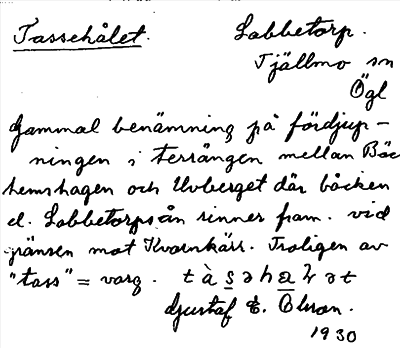 Tassehålet. Labbetorp.
Tjällmo sn
Ögl
Gammal benämning på fördjup-
ningen i terrängen mellan Bäc
hemshagen och Uvberget där bäcken
el. Labbetorpsån rinner fram. vid
gränsen mot Kvarnkärr. Troligen av
"tass" = varg. t à s ə h a
Gustaf E. Olsson.
1930